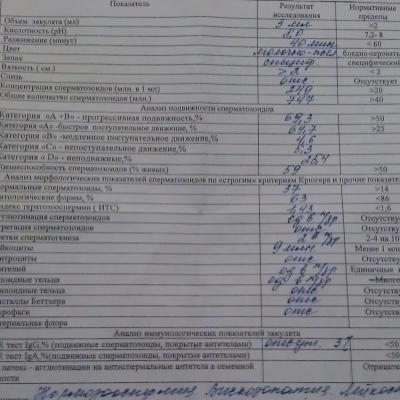 Показатель Результат исследования Нормативные пределы
Объем эякулята (мл) 3 мл >2
Кислотность (pH) 8,0 7,2- 8
Разжижение (минут) 40 мин < 60
Цвет молочно- бледно-сероват
Запах специф. специфический
Вязкость ( см.) > 2 < 2
Слизь отс. Отсутству
Концентрация сперматозоидов (млн. в 1 мл) 240 >20
Общее количество сперматозоидов (млн.) 747 >40
Анализ подвижности сперматозоидов
Категория «A +B» - прогрессивная подвижность,% 69,3 >50
Категория «A» -быстрое поступательное движение,% 64,7 >25
Категория «B» -медленное поступательное движение,% 4,6
Категория «C» - непоступательное движение,% 5,3
Категория « D» - неподвижные,% 25,4
Жизнеспособность сперматозоидов (% живых) 59 >50
Анализ морфологических показателей сперматозоидов по «строгим» критериям Крюгера и прочие показате
ормальные сперматозоиды, % 37 >14
атологические формы, % 63 <86
ндекс тератозооспермии ( ИТС) 1,43 <1,6
глютинация сперматозоидов ед в п/зр Отсутствуе
регация сперматозоидов отс Отсутству
етки сперматогенеза 2 в п/зр 2-4 на 10
йкоциты 9 млн. Менее 1 мл
итроциты отс Отсутству
ителий ед в п/зр Единичные
лоидные тельца ед в п/зр Много
алоидные тельца отс Отсутству
исталлы Беттхера отс Отсутству
крофаги отс Отсутству
териальная флора
Анализ иммунологических показателей эякулята
R тест IgG,% (подвижные сперматозоиды, покрытые антителами) отсут. <50
R тест IgA,%(подвижные сперматозоиды, покрытые антителами) <50
латекс - агглютинация на антиспермальные антитела в семенной Отрицате
кости
Нормозооспермия. Вискозопатия. Лейкос